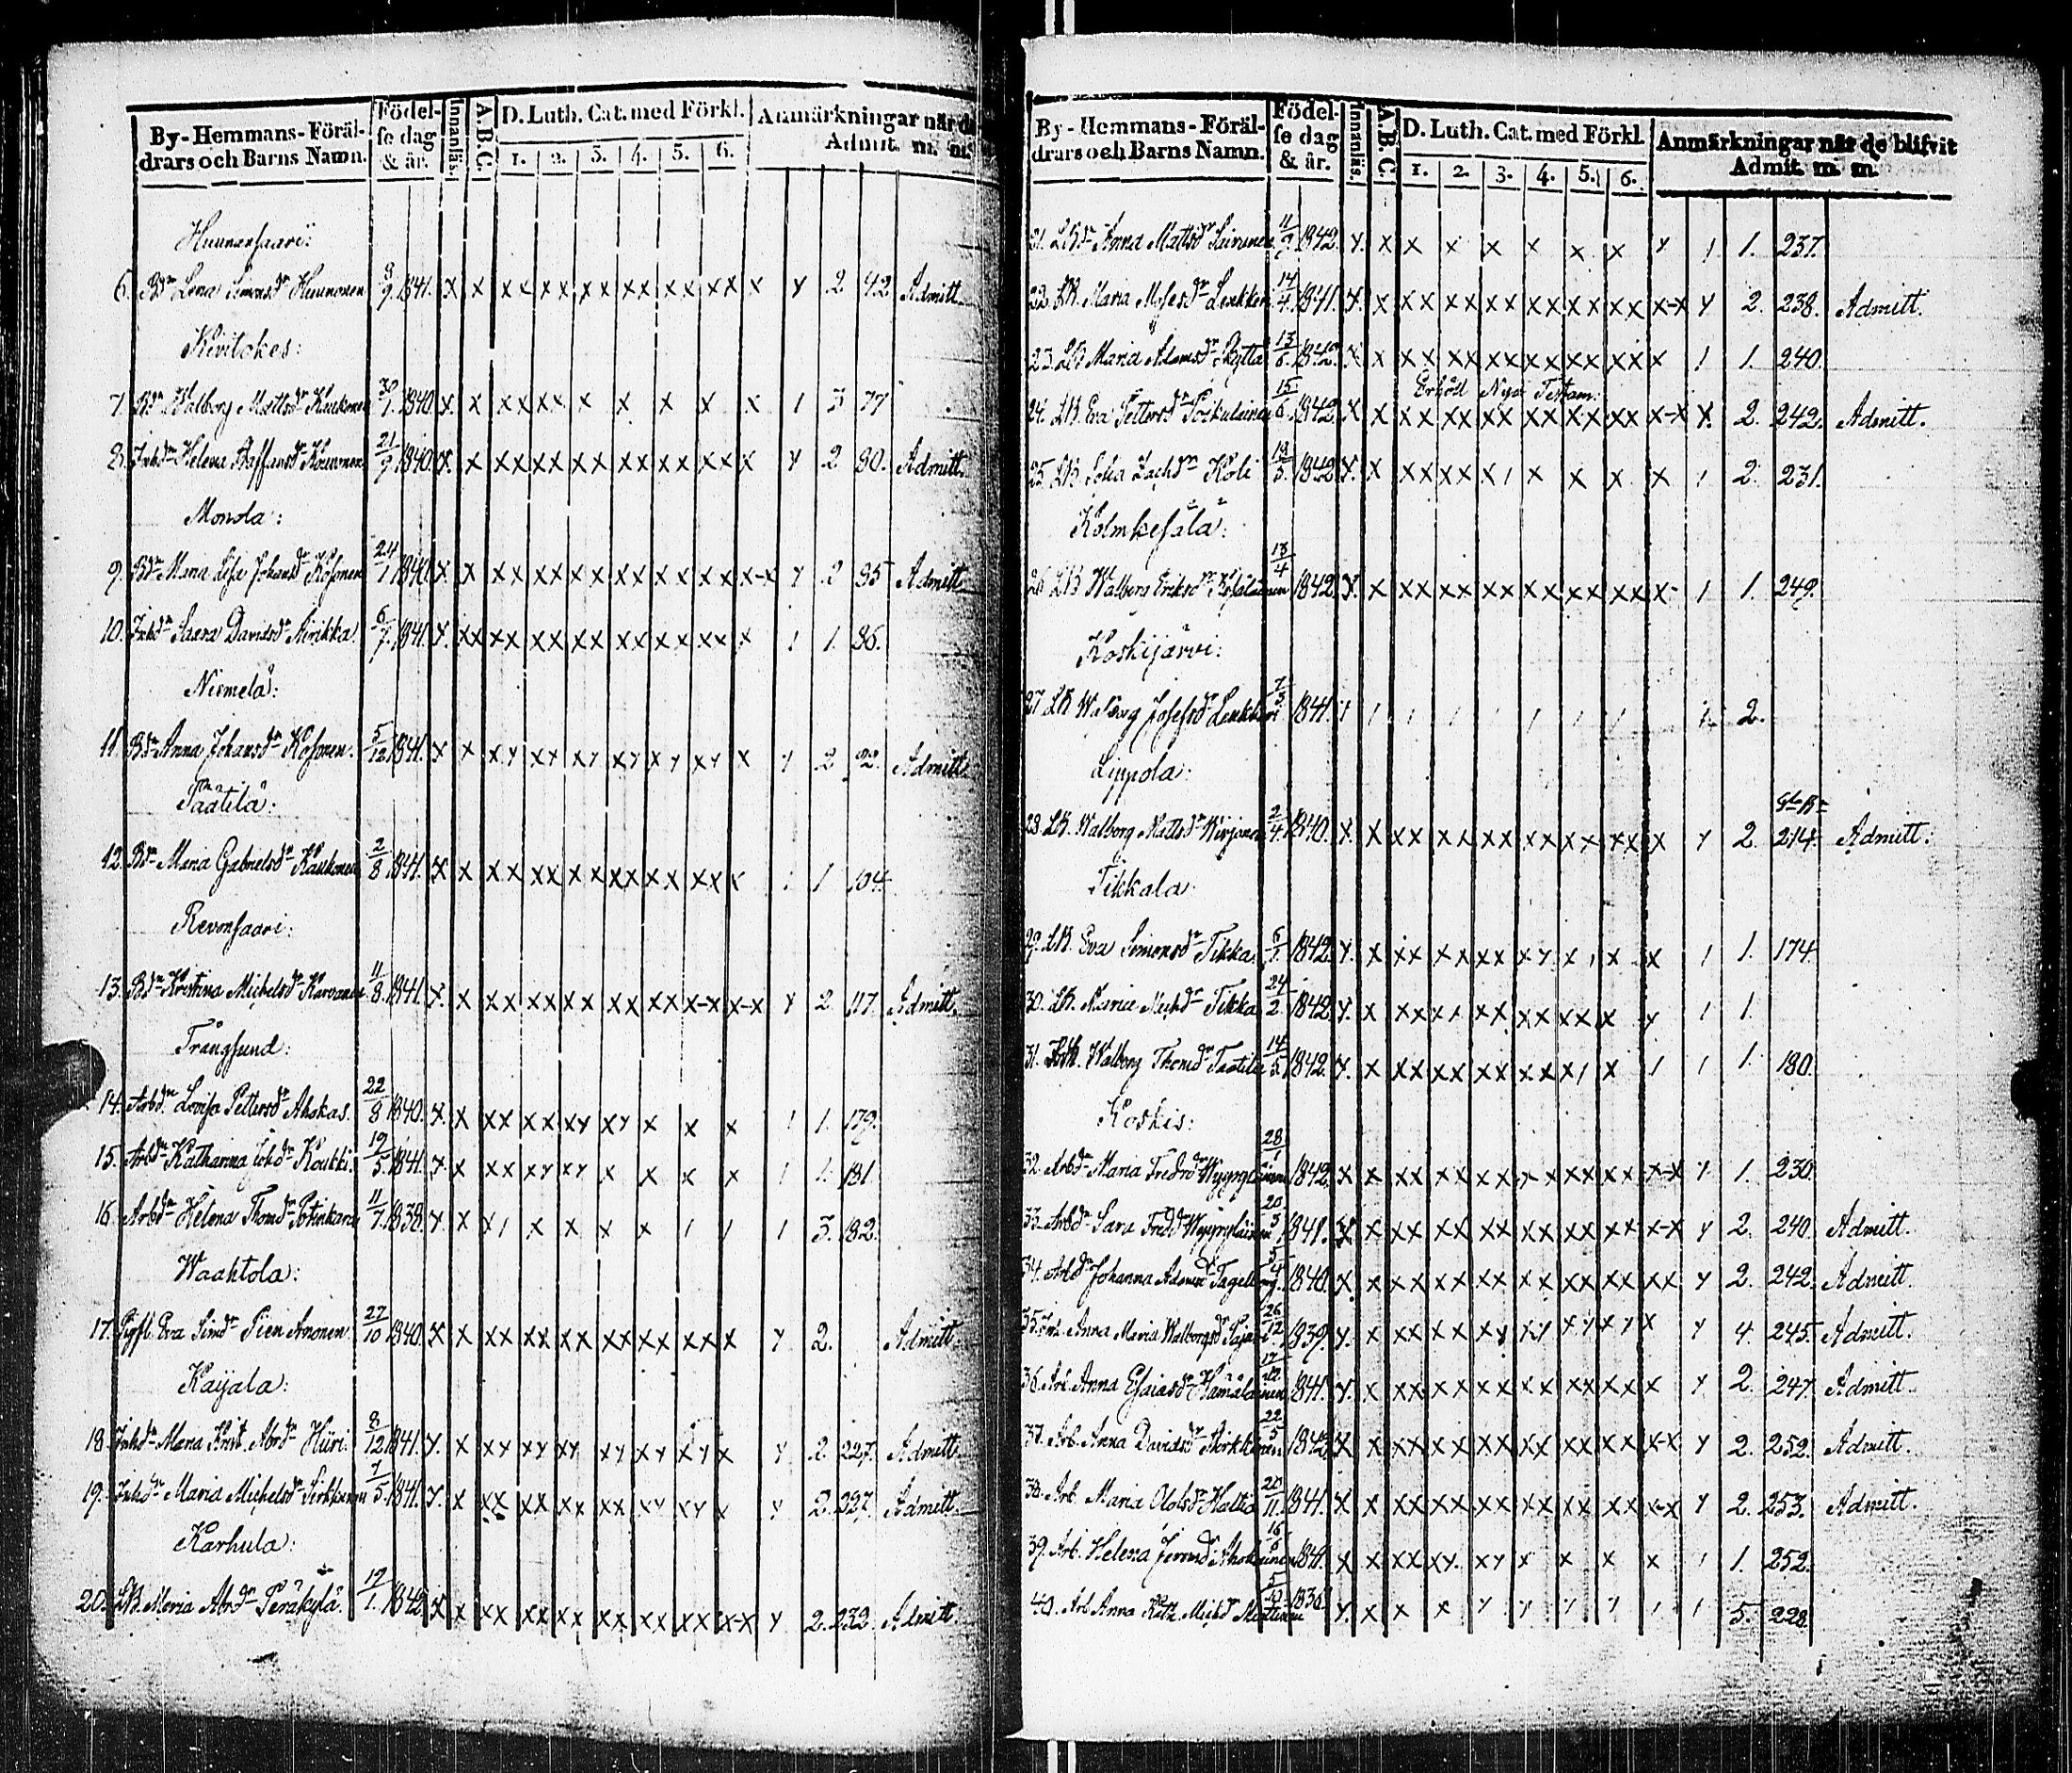 By-Hemmans-Föräl-
drars och Barns Namn.
Födel-
se dag
& år.
Innanläs.
A.B.C.
D. Luth. Cat. med Förkl.
1. 2. 3. 4. 5. 6.
Anmärkningar när de
Admit. m. m.
Huunonsaari:
6. Bdr Lena Simonsdr Huunonen 8/9 1841. x x xx xx xx xx xx xx x y 2 42 Admitt.
Kivilokes:
7. Bdr Walborg Mattsdr Kaukonen 30/1 1840 x x xx xx x x x x x 1 3 77
8. Inhdr Helena Staffansdr 21/9 1840. x x xx xx xx xx xx xx x y 2 80. Admitt.
Monola:
9. Bdr Maria Lisa Johansdr Kosonen 24/1 1840 x x xx xx xx xx xx xx x-x y 2 85 Admitt
10. Inhdr Saara Davidsdr Airikka 6/7 1841. x. xx xx xx xx xx xx xx x 1 1. 86.
Niemelä:
11. Bdr Anna Johansdr Kosonen. 5/12 1841. x x xy xy xy xy xy xy x y 2 92. Admitt
Päätilä:
12. Bdr Maria Gabrielsdr Kaukonen 2/8 1841. x x xx xx xx xx xx xx x 1 1 104
Revonsaari:
13. Bdr Kristina Michelsdr Karvanen 11/8 1841. x. x xx xx xx xx xx x-x x-x y 2 117. Admitt.
Trångsund:
14. Arbdr Lovisa Pettersdr Ahokas. 22/8 1840. x. x xx xx xy xy x x x 1 1. 179.
15. Arbdr Katharina Johdr Koukki. 19/5 1841. y x xx xy xy x x x x 1 1. 181
16. Arbdr Helena Thomdr 11/7 1838. y. x x1 x x x x 1 1 1 3. 182.
Waahtola:
17. Eva Simdr Pien Amonen. 27/10 1840 x x xx xx xx xx xx xx x y 2. Admitt.
Kaijala:
18. Inhdr Maria Krist. Abrdr Hüri. 8/12 1841. y. x xy xy xy xy xy xy x y 2. 227. Admitt.
19. Inhdr Maria Michelsdr 7/5 1841. y. x xx xx xx xx xy xy x y 2. 227. Admitt.
Karhula:
20. LB. Maria Abrdr Peräkylä. 19/1. 1842 x x xx xx xx xx xx xx x-x y 2. 232. Admitt.
By-Hemmans-Föräl-
drars och Barns Namn.
Födel-
se dag
& år.
Innanläs.
A.B.C.
D. Luth. Cat. med Förkl.
1. 2. 3. 4. 5. 6.
Anmärkningar när de blifvit
Admit. m. m.
21. LBdr Anna Mattsdr 1842. y. x x x x x x x y 1 1. 237.
22. LB. Maria Mosesdr Leukkunen 14/4 1841. y. x xx xx xx xx xx xx x-x y 2. 238. Admitt.
23. LB Maria Adamsdr Skyttä 13/6 1842. x x xx xx xx xx xx xx x 1 1. 240.
Erhöll Nya Testam:
24. LB. Eva Pettersdr 15/6 1842. x x xx xx xx xx xx xx x-x y. 2. 242. Admitt.
25. LB. Sofia Zachdr Koli 1842. y. x xx xx x1 x x x x 1 2. 231.
Kolmkesälä:
26. LB Walborg Eriksdr 13/4 1842. y. x xx xx xx xx xx xx x- 1 1. 249.
Koskijärvi:
27. LB Walborg Josefsdr 7/3 1841. 1 1 1 1 1 1 1 1 1. 2.
Lippola:
28. LB. Walborg Mattsdr 2/4 1840. x. x xx xx xx xx xx xx x y 2. 214. Admitt.
Tikkala:
29. LB. Eva Simonsdr Tikka. 1842. y. x xx xx xx xy x1 x x 1 1. 174.
30. LB. Maria Michdr Tikka 24/2 1842. y. x xx x1 xx xx xx x y 1 1.
31. Walborg Thomdr 14/5 1842. y. x xx xx xx xx x1 x 1 1 1. 180.
Koskis:
32. Arbdr Maria Fredrdr 28/1 1842. x x xx xx xx xx xx xx x-x y 1. 230.
33. Arbdr Sara Fredrdr 20/3 1841. x x xx xx xx xx xx xx x-x y 2. 240. Admitt.
34. Arbdr Johanna Tagelberg. 5/4 1840. x x xx xx xx xx xx xx xx y 2. 242. Admitt.
35. Anna Maria Walborgsdr 26/12 1839. y. x xx xx xy xy xy xy x y 4. 245. Admitt.
36. Arb. Anna Esaiasdr Hämäläinen 1841. y. x xx xx xx xx xx xx x y 2. 247. Admitt.
37. Arb. Anna Davidsdr 22/5 1842. x x xx xx xx xx xx xx x-x y 2. 252. Admitt.
38. Arb. Maria Olofsdr Hattia 20/11. 1841. x x xx xx xx xx xx xx x-x y 2. 253. Admitt.
39. Arb. Helena 16/6 1841. x x xx xy. xy x x x x 1 1. 252.
40. Arb. Anna Kath. Michdr y. x x x y y y y 1 1 5. 228.